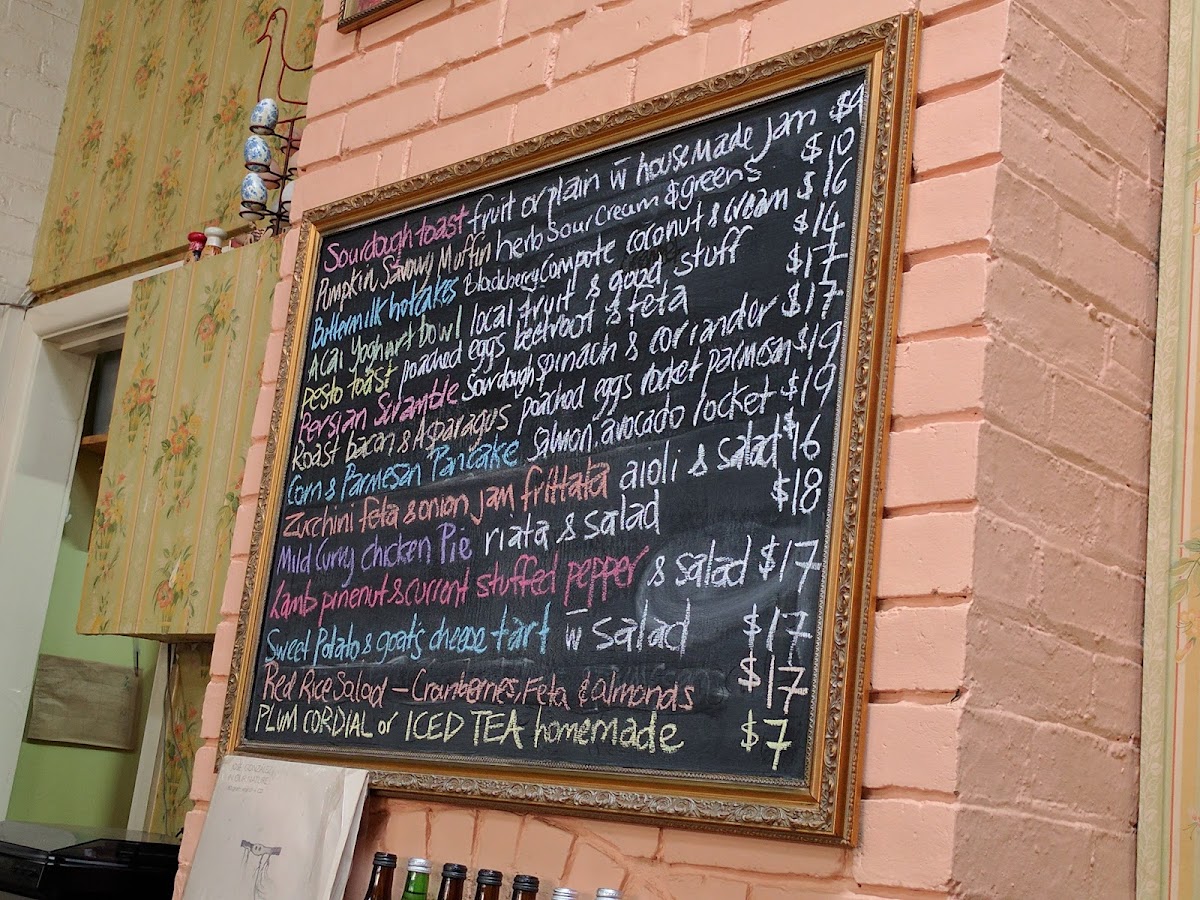 Sourdough toast fruit or plain w̄ housemade jam $9
Pumpkin Savoury Muffin herb sour cream & greens $10
Buttermilk hotcakes Blackberry Compote coconut & cream $16
Acai Yoghurt bowl local fruit & good stuff $14
Pesto toast poached eggs beetroot & feta $17
Persian Scramble Sourdough spinach & coriander $17
Roast bacon & Asparagus poached eggs rocket parmesan $19
Corn & Parmesan Pancake salmon, avocado rocket $19
Zucchini feta & onion jam frittata aioli & salad $16
Mild Curry chicken Pie riata & salad $18
Lamb pinenut & currant stuffed pepper & salad $17
Sweet Potato & goat's cheese tart w̄ salad $17
Red Rice Salad – Cranberries, Feta & almonds $17
PLUM CORDIAL or ICED TEA homemade $7